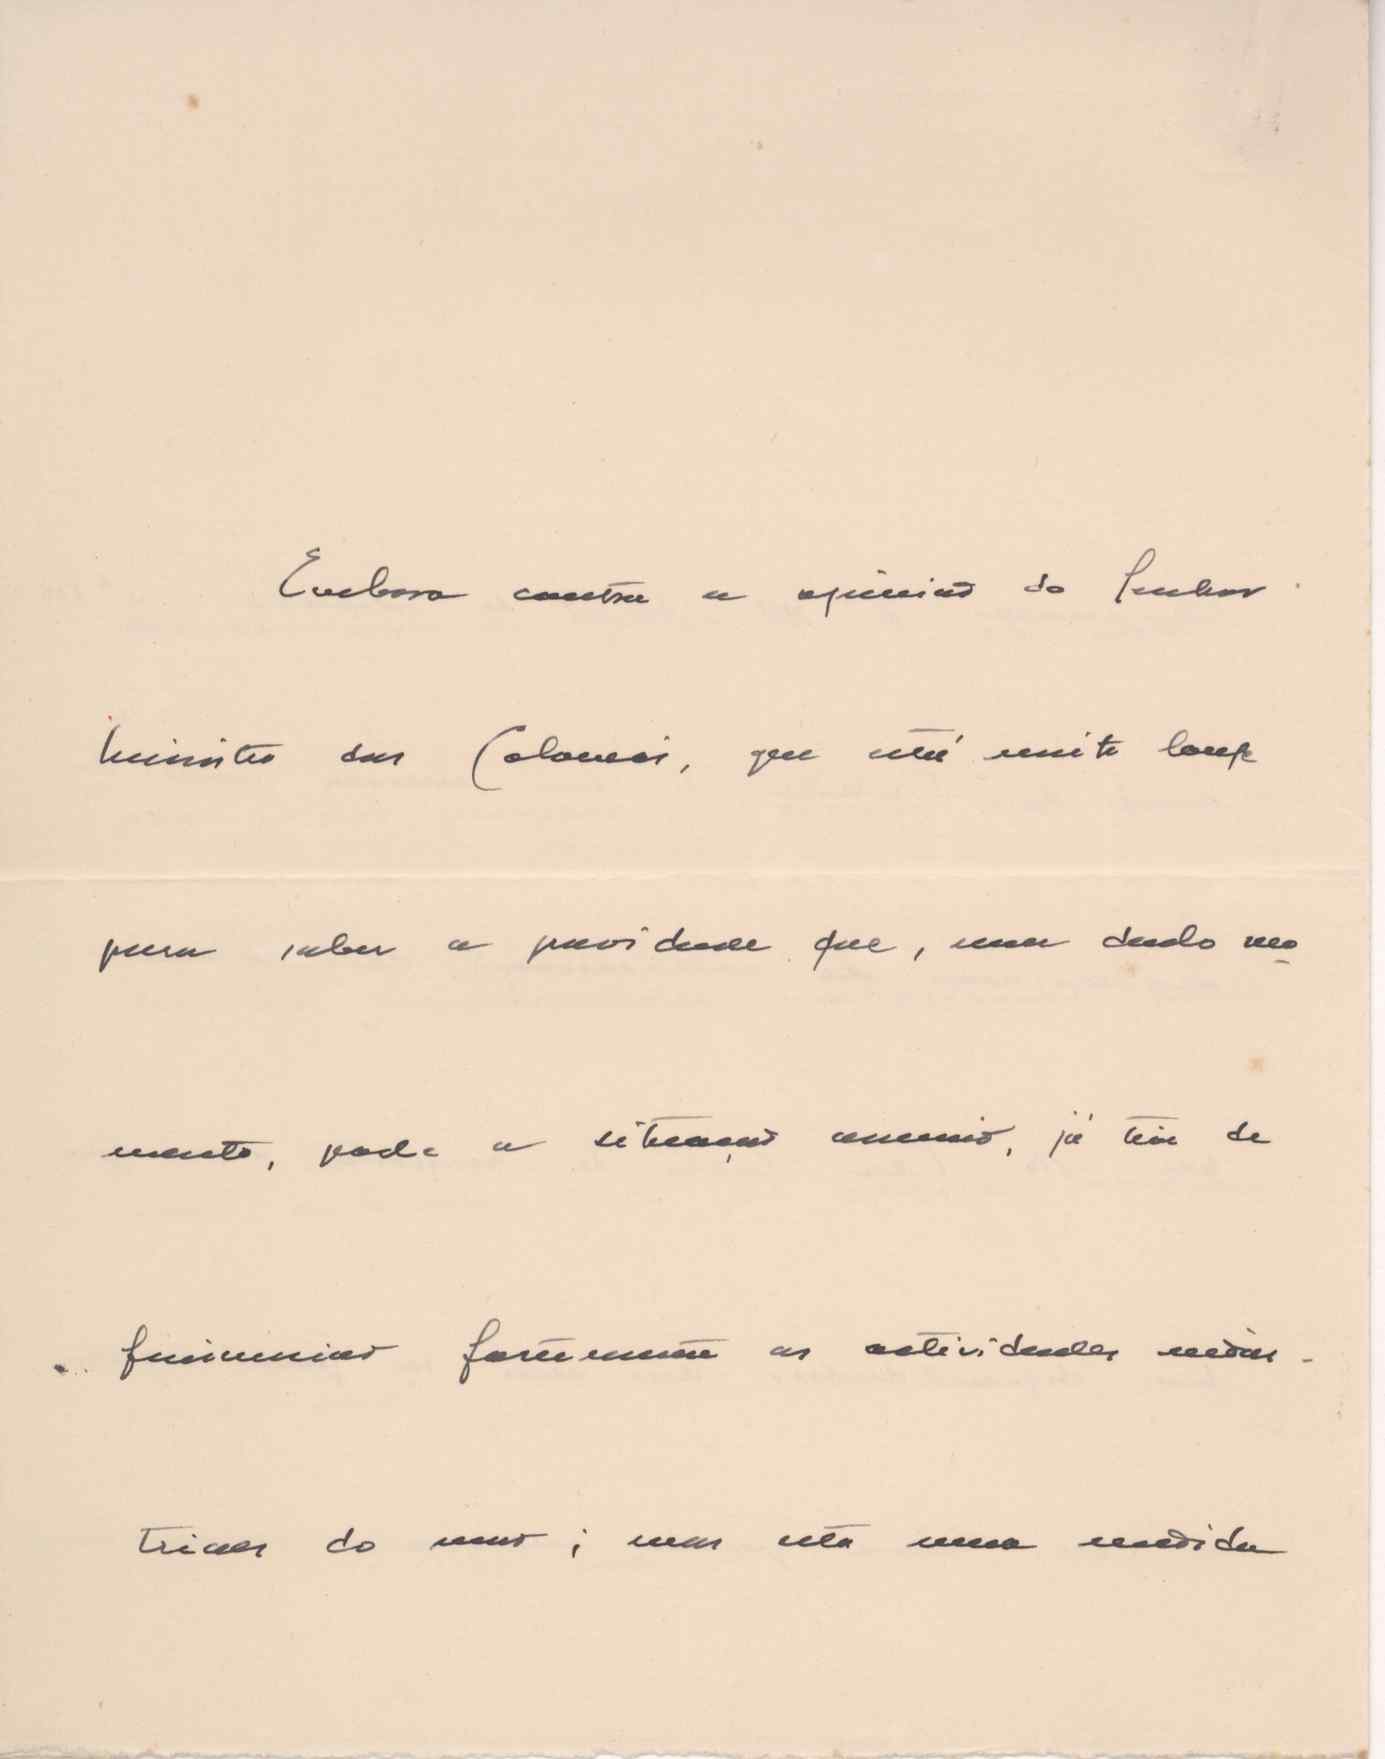 Embora contra a opinião do Senhor
Ministro das Colonias, que está muito longe
para saber a gravidade que, num dado mo
mento, pode a situação assumir, já tem de
fortemente as actividades medias-
trices do ; mas esta uma medida